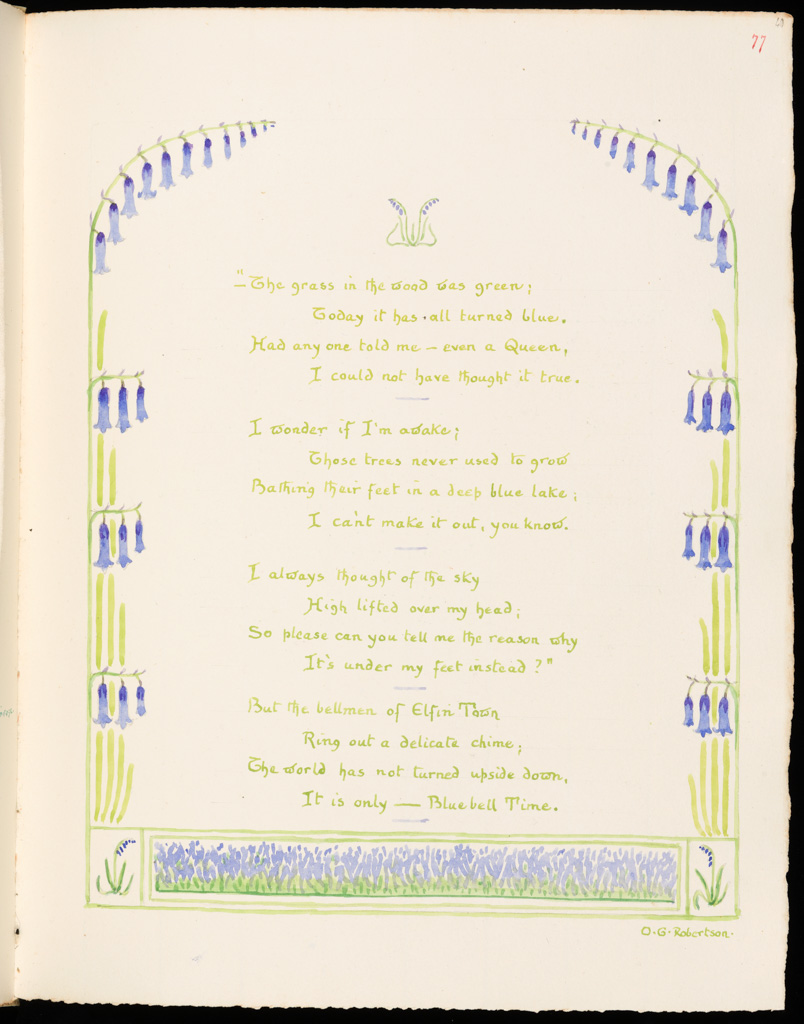 77
"The grass in the wood was green;
Today it has all turned blue.
Had any one told me – even a Queen,
I could not have thought it true.
I wonder if I'm awake;
Those trees never used to grow
Bathing their feet in a deep blue lake;
I can't make it out, you know.
I always thought of the sky
High lifted over my head;
So please can you tell me the reason why
It's under my feet instead?"
But the bellmen of Elfin Town
Ring out a delicate chime;
The world has not turned upside down,
It is only — Bluebell Time.
O.G. Robertson.